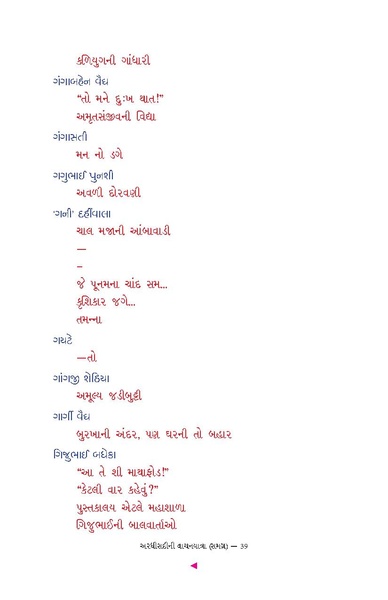 કળિયુગની ગાંધારી
ગંગાબહેન વૈદ્ય
“તો મને દુઃખ થાત!”
અમૃતસંજીવની વિદ્યા
ગંગાસતી
મન નો ડગે
ગગુભાઈ પુનશી
અવળી દોરવણી
'ગની' દહીંવાલા
ચાલ મજાની આંબાવાડી
—
–
જે પૂનમના ચાંદ સમ...
કૃશિકાર જગે...
તમન્ના
ગયટે
—તો
ગાંગજી શેઠિયા
અમૂલ્ય જડીબુટ્ટી
ગાર્ગી વૈદ્ય
બુરખાની અંદર, પણ ઘરની તો બહાર
ગિજુભાઈ બધેકા
“આ તે શી માથાફોડ!”
“કેટલી વાર કહેવું?”
પુસ્તકાલય એટલે મહાશાળા
ગિજુભાઈની બાલવાર્તાઓ
અરધીસદીની વાચનયાત્રા (સમગ્ર) — 39